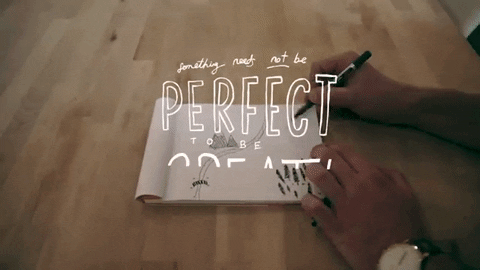 something need not be
PERFECT
TO BE
GREAT!